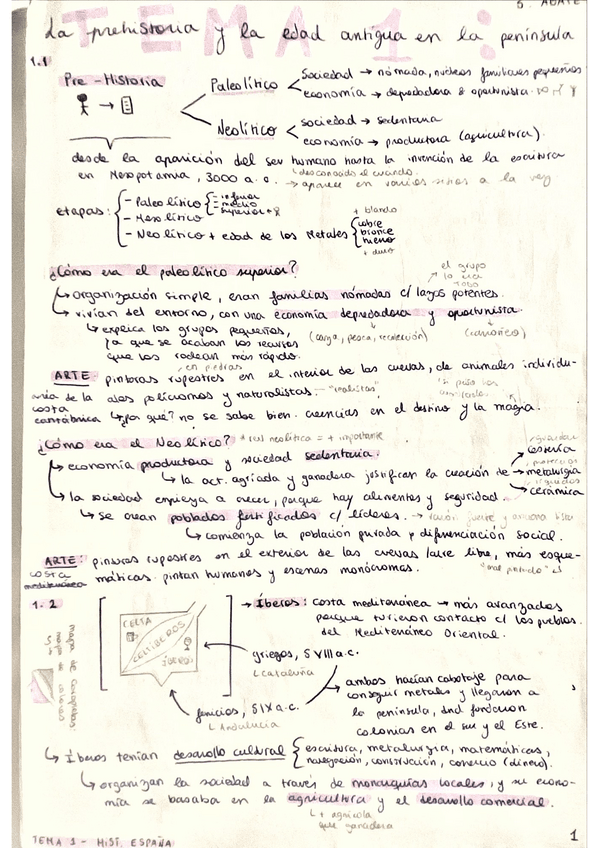 S. ABATE
TEMA 1:
La prehistoria y la edad antigua en la península
1.1
Pre-Historia
Paleolítico
Sociedad → nómada, núcleos familiares pequeños
economía → depredadora & oportunista
Neolítico
sociedad → sedentaria
economía → productora (agricultura).
desde la aparición del ser humano hasta la invención de la escritura
en Mesopotamia, 3000 a.c.
desconocido el cuando.
→ aparece en varios sitios a la vez
etapas:
- Paleolítico
- inferior
- medio
- superior
- Mesolítico
- Neolítico + edad de los Metales
+ blando
cobre
bronce
hierro
+ duro
¿Cómo era el paleolítico superior?
↳ organización simple, eran familias nómadas c/ lazos potentes.
el grupo
lo era
TODO
↳ vivían del entorno, con una economía depredadora y oportunista.
↳ explica los grupos pequeños,
ya que se acababan los recursos
que los rodean más rápido.
(caza, pesca, recolección)
(carroñeo)
en piedras
ARTE: pinturas rupestres en el interior de las cuevas, de animales individu-
ales polícromos y naturalistas. - "realistas"
zona de la
costa
cantábrica
↳ ¿por qué? no se sabe bien. creencias en el destino y la magia.
¿Cómo era el Neolítico? + rev neolítica = + importante
↳ economía productora y sociedad sedentaria.
↳ la act. agrícola y ganadera justifican la creación de
cestería
metalurgia
cerámica
↳ la sociedad empieza a crecer, porque hay alimentos y seguridad.
↳ se crean poblados fortificados c/ líderes.
↳ comienza la población privada y diferenciación social.
ARTE: pinturas rupestres en el exterior de las cuevas (aire libre, más esque-
máticas. pintan humanos y escenas monócromas.
costa
mediterránea
1.2
CELTA
CELTIBEROS
ÍBEROS
mapa de
→ Íberos: costa mediterránea → más avanzados
porque tuvieron contacto c/ los pueblos
del Mediterráneo Oriental.
griegos, S VIII a.c.
↳ Cataluña
fenicios, S IX a.c.
↳ Andalucía
ambos hacían cabotaje para
conseguir metales y llegaron a
la península, and fundaron
colonias en el sur y el Este.
↳ Íberos tenían desarrollo cultural
escritura, metalurgia, matemáticas,
navegación, construcción, comercio (dinero).
↳ organizan la sociedad a través de monarquías locales, y su econo-
mía se basaba en la agricultura y el desarrollo comercial.
↳ + agrícola
que ganadera
TEMA 1 - HIST. ESPAÑA
1